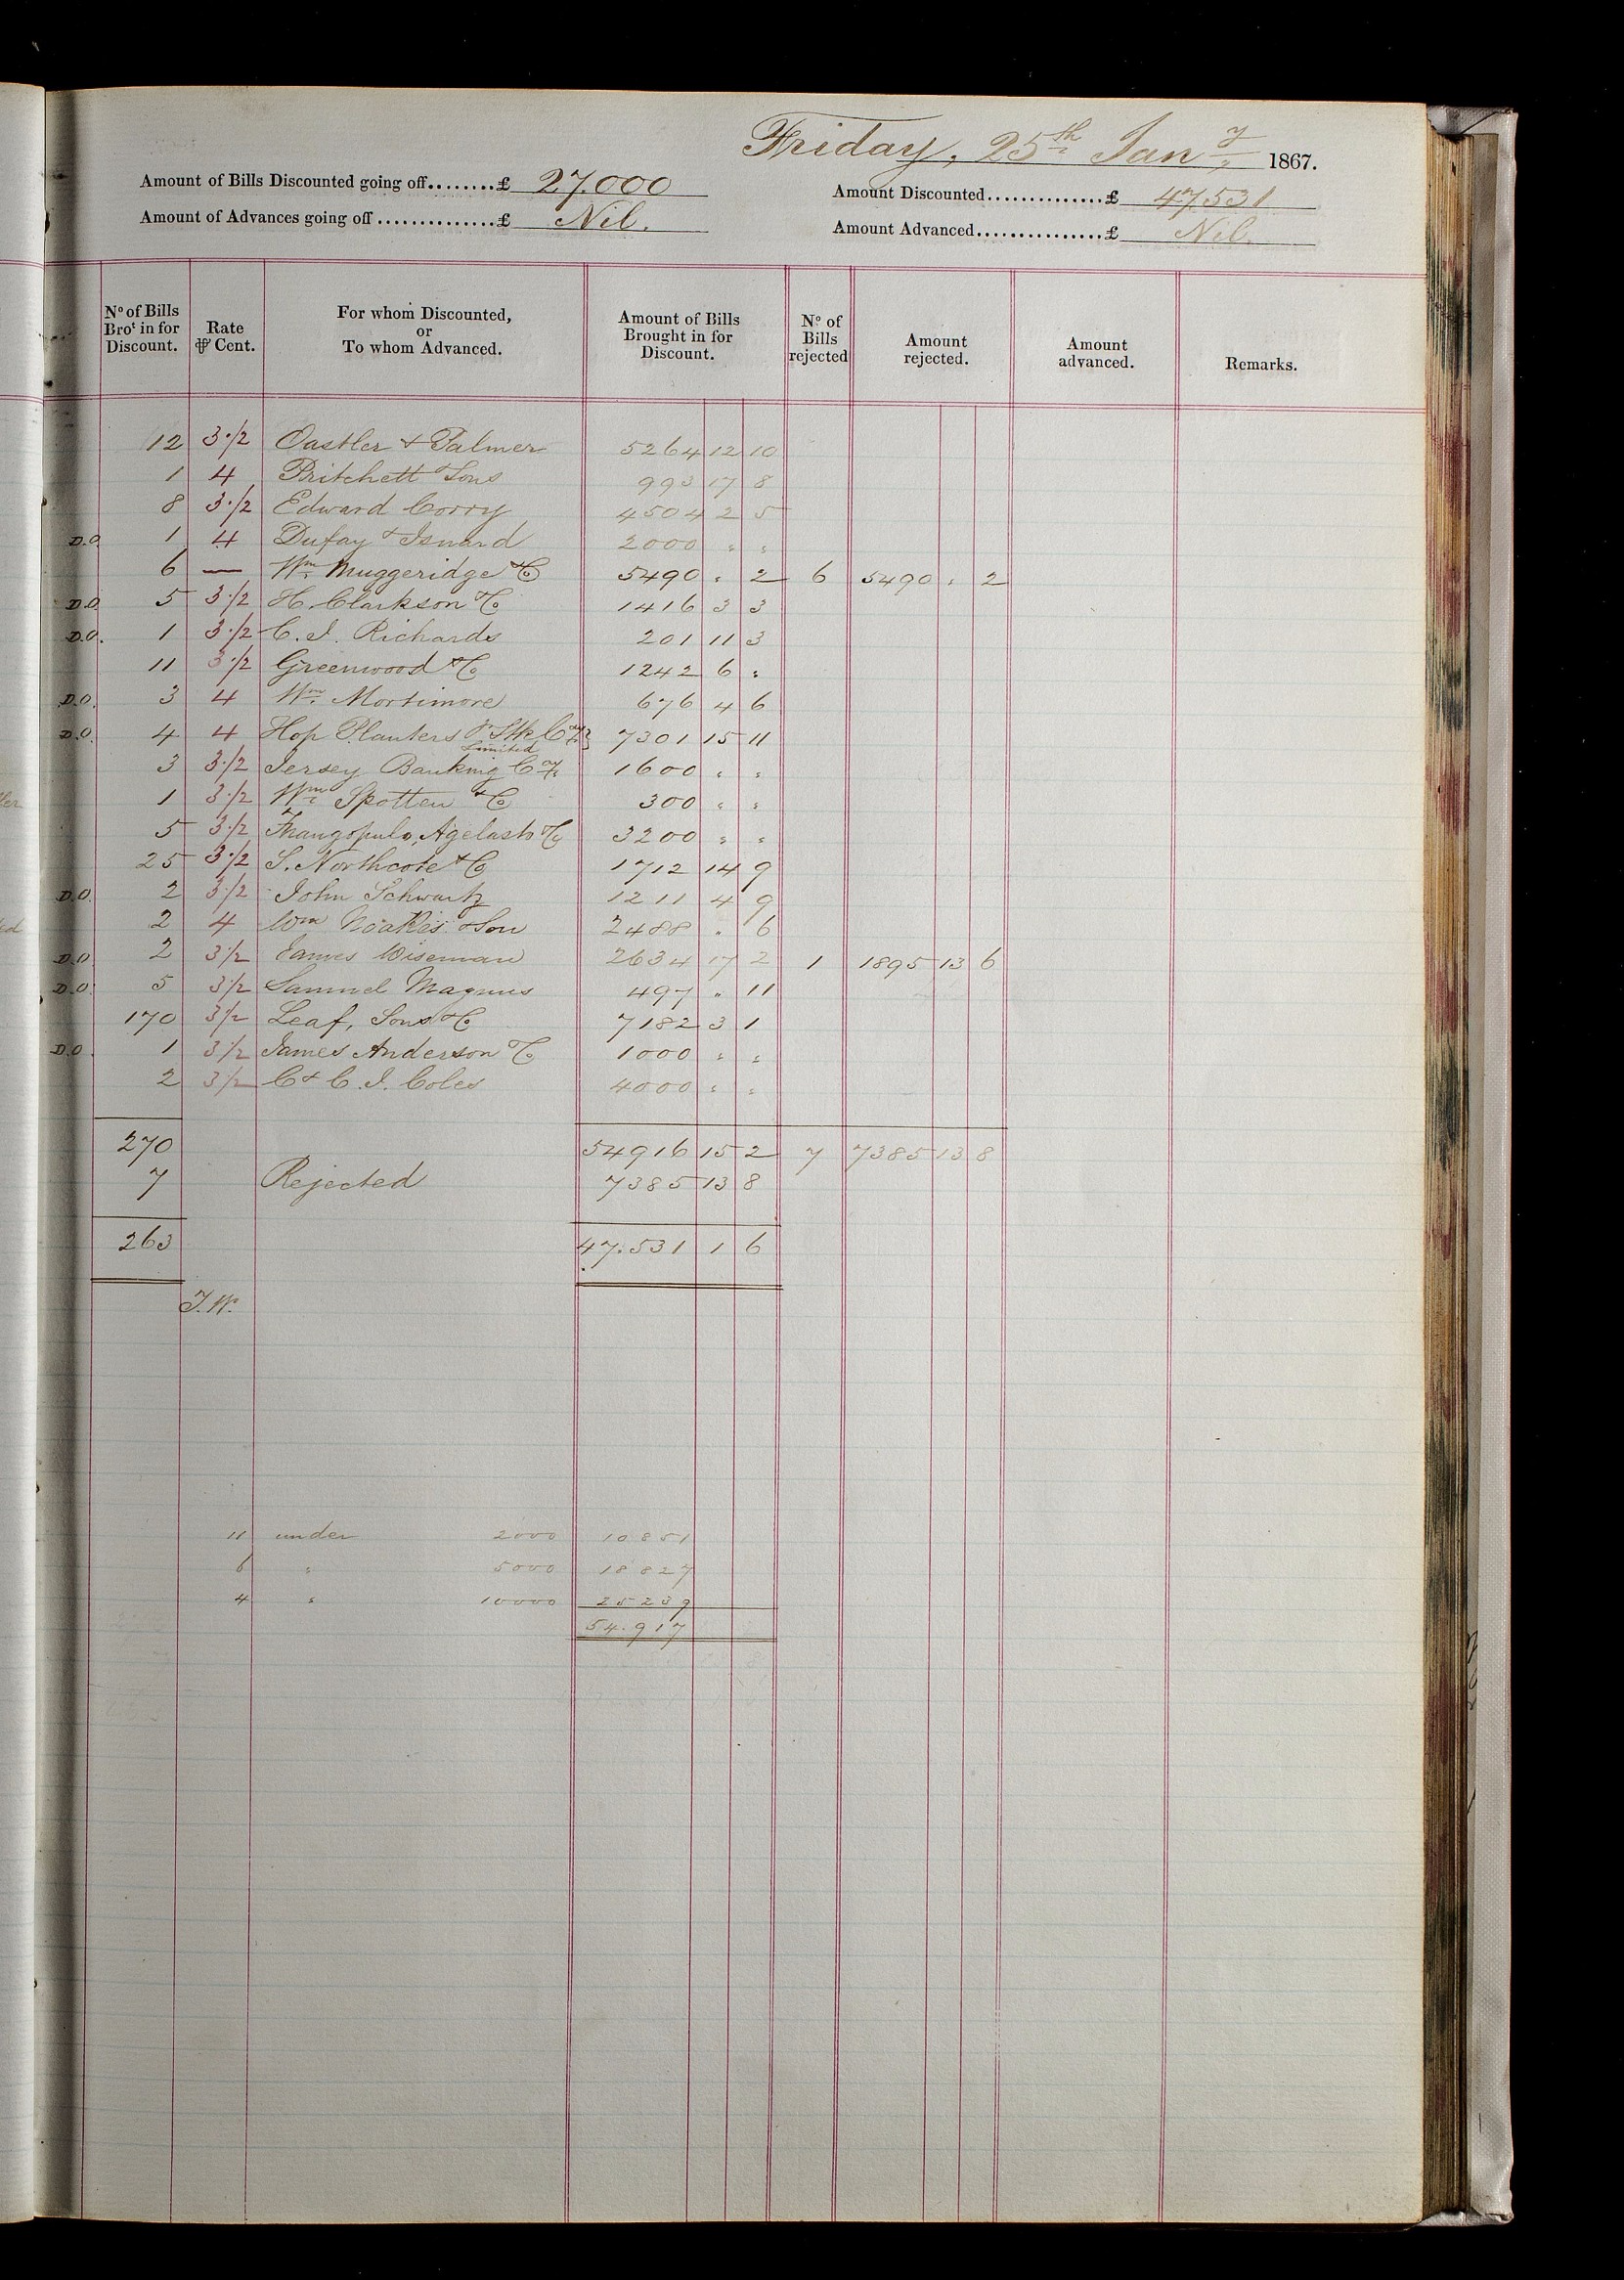 Friday, 25th Jany 1867.
Amount of Bills Discounted going off........£ 27.000
Amount Discounted..............£ 47.531
Amount of Advances going off..............£ Nil.
Amount Advanced...............£ Nil.
No of Bills Brot in for Discount. Rate ⅌ Cent. For whom Discounted, or To whom Advanced. Amount of Bills Brought in for Discount. No of Bills rejected Amount rejected. Amount advanced. Remarks.
12 3·/2 Oastler & Palmer 5264 12 10
1 4 Pritchett & Sons 993 17 8
8 3·/2 Edward Corry 4504 2 5
D.O. 1 4 Dufay & Isnard 2000 " "
6 — Wm Muggeridge & Co 5490 " 2 6 5490 " 2
D.O. 5 3·/2 H. Clarkson & Co 1416 3 3
D.O. 1 3·/2 C. J. Richards 201 11 3
11 3·/2 Greenwood & Co 1242 6 "
D.O. 3 4 Wm Mortimore 676 4 6
D.O. 4 4 Hop Planters Jt Stk Coy 7301 15 11
Limited
3 3·/2 Jersey Banking Coy. 1600 " "
1 3·/2 Wm Spotten & Co 300 " "
5 3·/2 Agelasto & Co 3200 " "
25 3·/2 S. Northcote & Co 1712 14 9
D.O. 2 3·/2 John Schwartz 1211 4 9
2 4 Wm Noakes & Son 2488 " 6
D.O. 2 3·/2 James Wiseman 2634 17 2 1 1895 13 6
D.O. 5 3·/2 Samuel Magnus 497 " 11
170 3/2 Leaf, Sons & Co 7182 3 1
D.O. 1 3/2 James Anderson & Co 1000 " "
2 3/2 C & C. J. Coles 4000 " "
270 54916 15 2 7 7385 13 8
7 Rejected 7385 13 8
263 47.531 1 6
J.W.
11 under 2000 10851
6 " 5000 18827
4 " 10000 25239
54.917